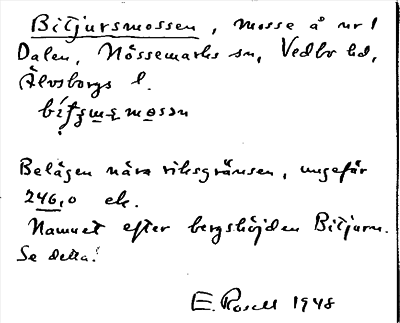 Bitjursmossen, mosse å nr 1
Dalen, Nössemarks sn, Vedbo hd,
Älvsborgs l.
Belägen nära riksgränsen, ungefär
246,0 ek.
Namnet efter bergshöjden Bitjurn.
Se detta!
E. Rosell 1948